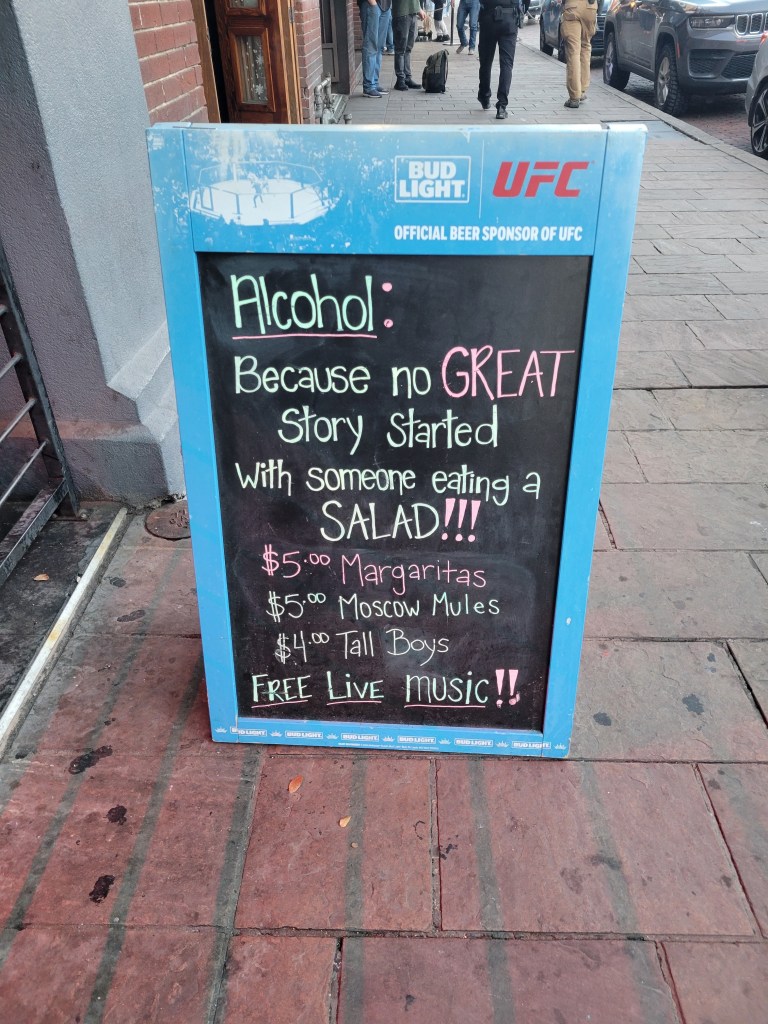 BUD
LIGHT
UFC
OFFICIAL BEER SPONSOR OF UFC
Alcohol:
Because no GREAT
Story Started
With someone eating a
SALAD!!!
$5.00 Margaritas
$5.00 Moscow Mules
$4.00 Tall Boys
FREE LIVE MUSIC!!
BUD LIGHT BUD LIGHT BUD LIGHT BUD LIGHT BUD LIGHT BUD LIGHT